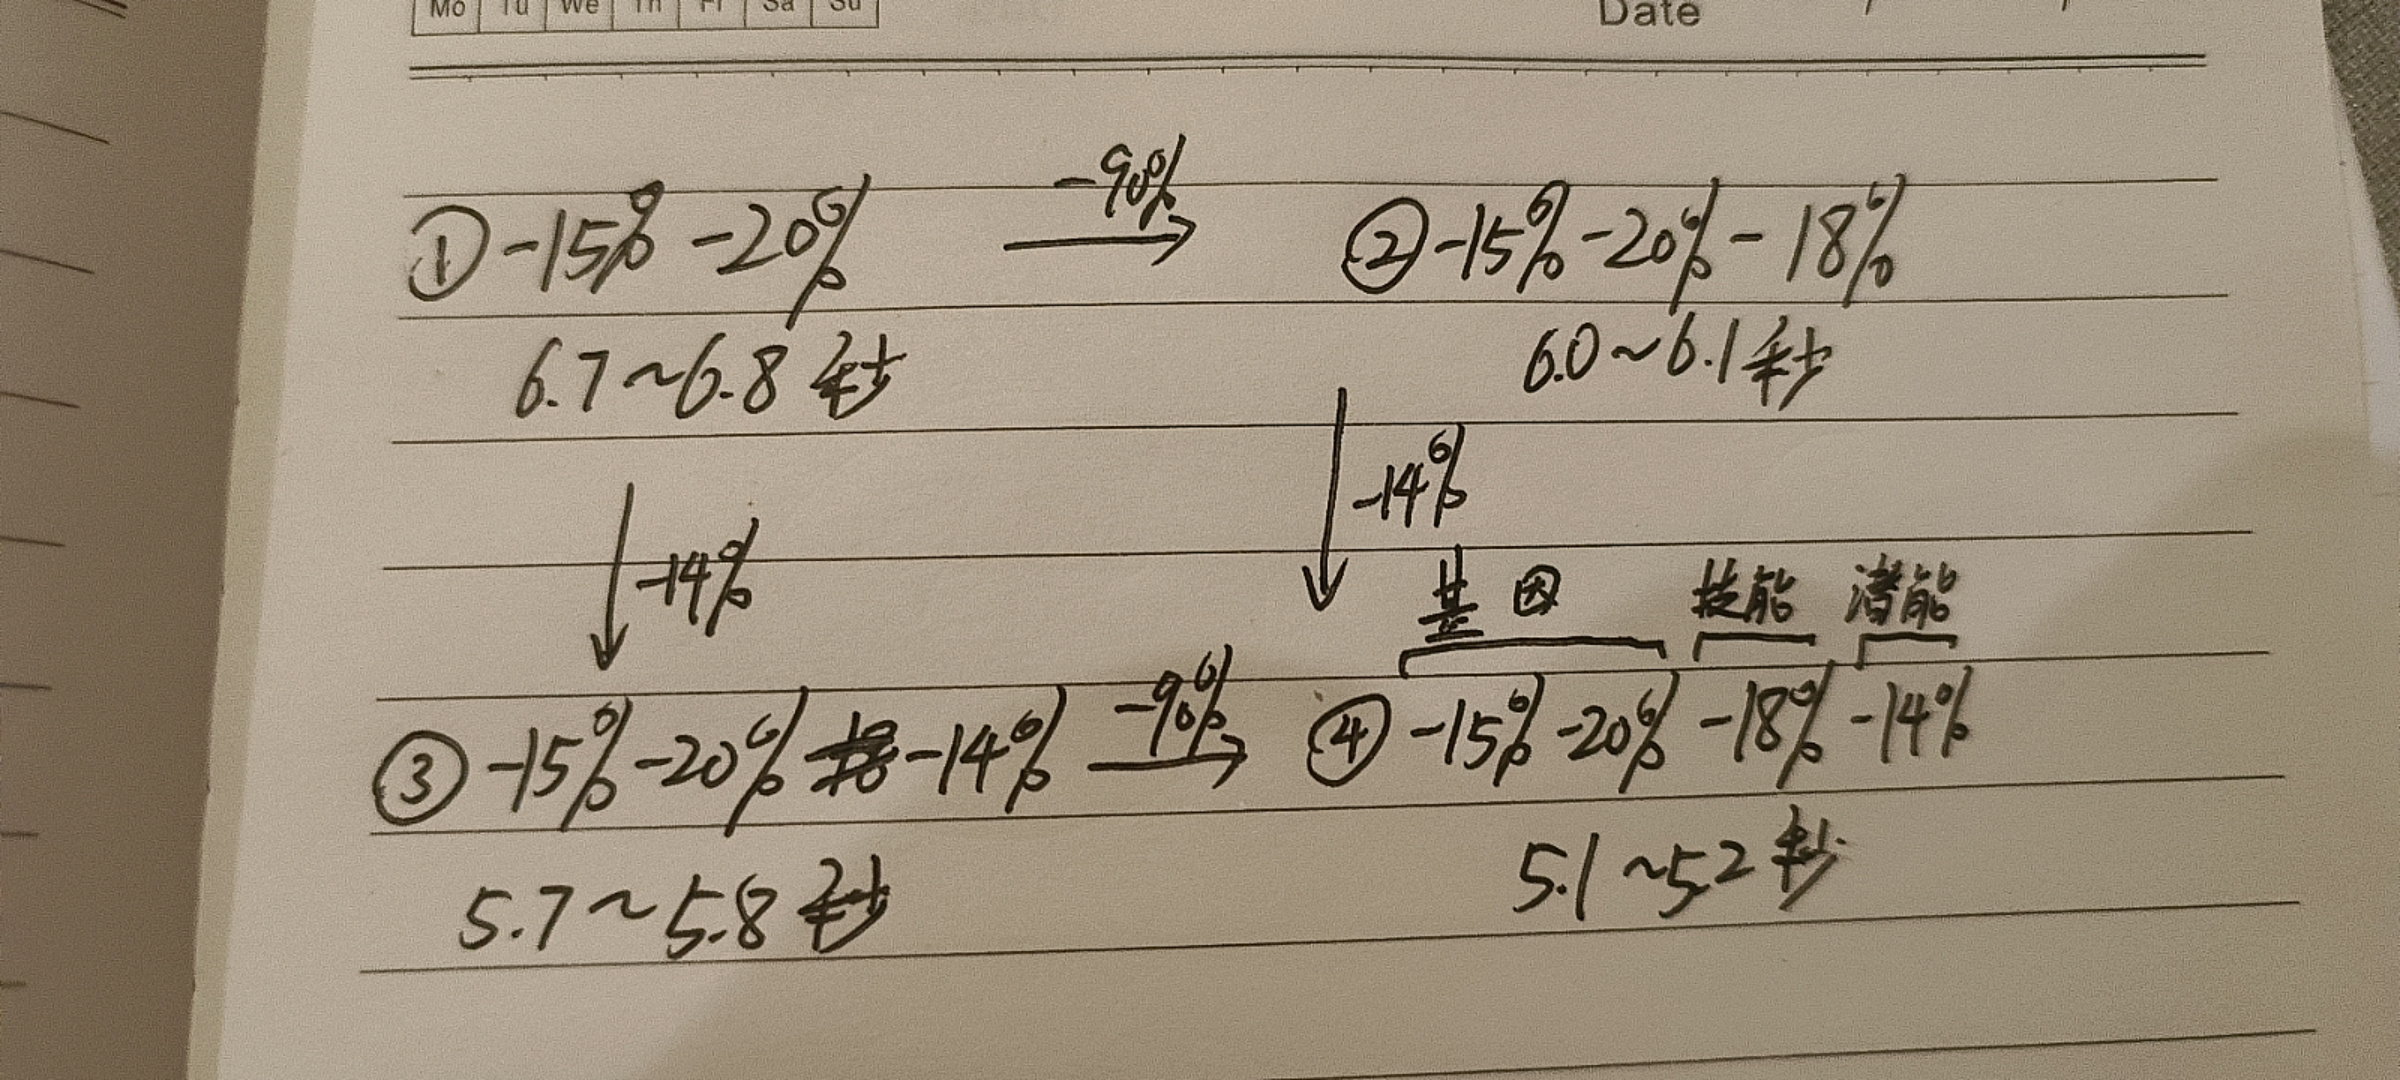 Mo Tu We Th Fr Sa Su Date / /
① -15% -20% -90% ② -15% -20% -18%
6.7~6.8秒 6.0~6.1秒
-14% -14%
基因 技能 潜能
③ -15% -20% -14% -90% ④ -15% -20% -18% -14%
5.7~5.8秒 5.1~5.2秒